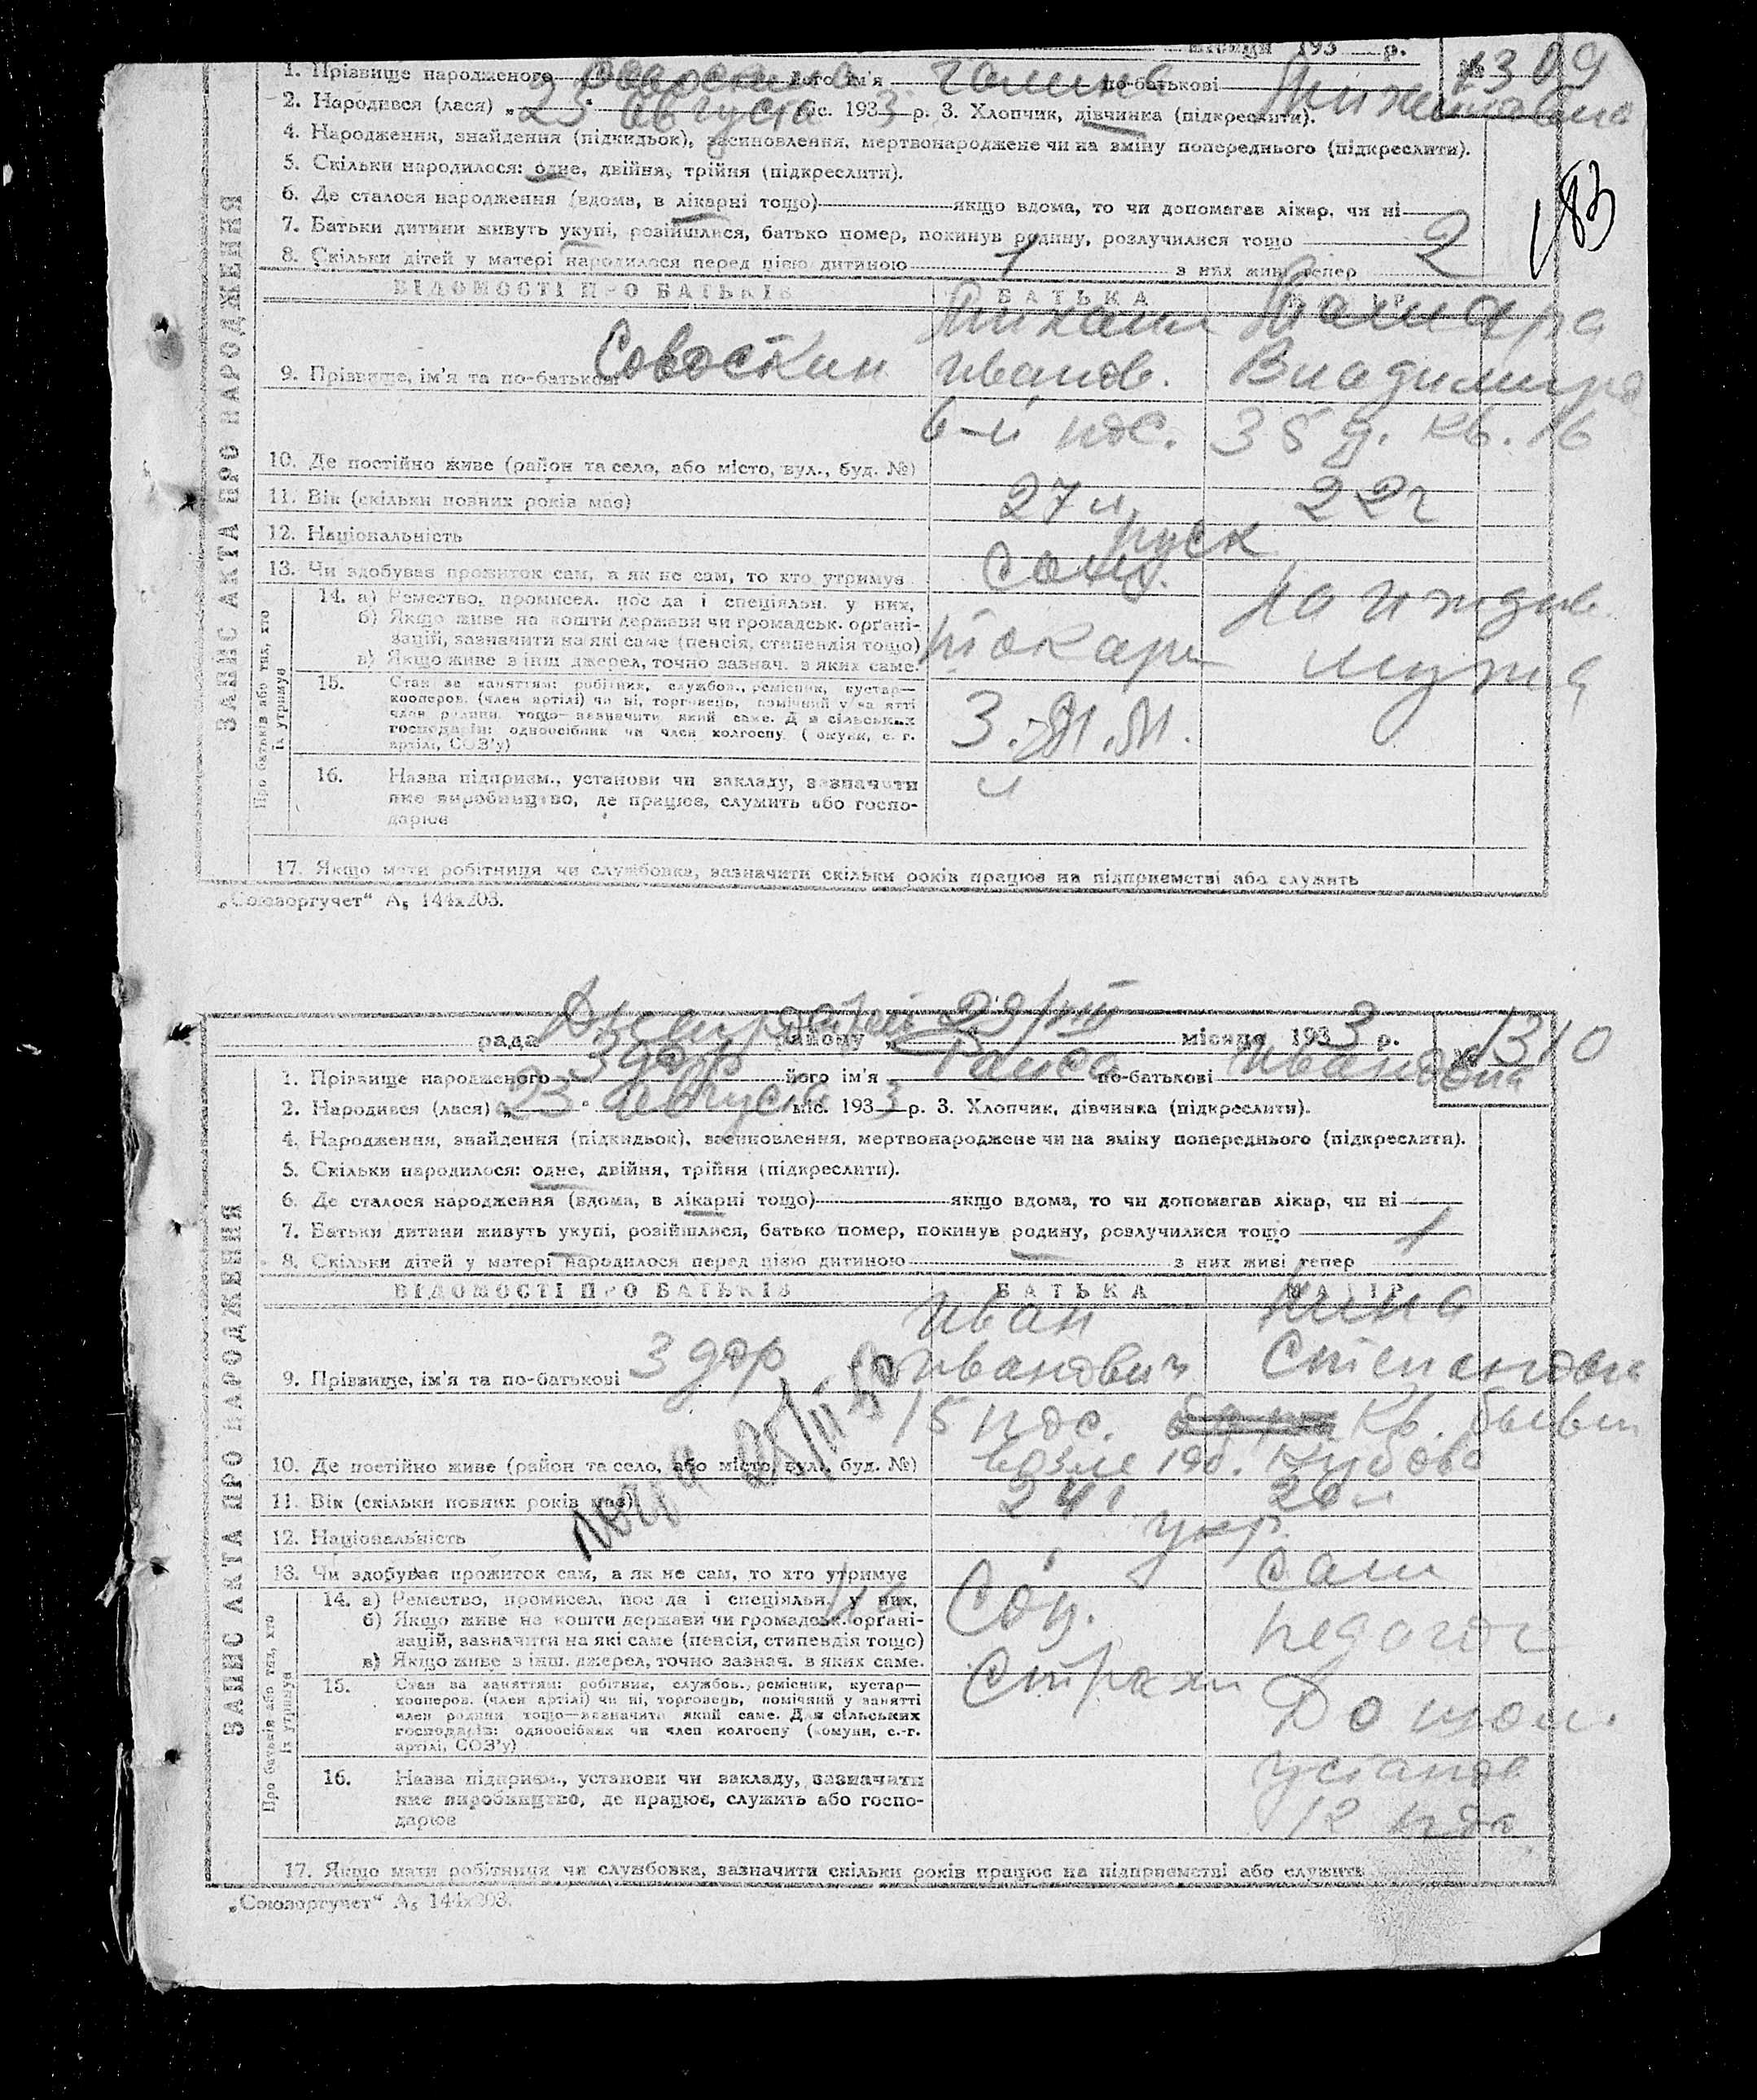 місяця 193 р.
№ 1309
1. Прізвище народженого його ім'я Галина по-батькові
2. Народився (лася) „25" августа міс. 1933 р. 3. Хлопчик, дівчинка (підкреслити).
4. Народження, знайдення (підкидьок), всиновлення, мертвонароджене чи на зміну попереднього (підкреслити).
183
5. Скільки народилося: одне, двійня, трійня (підкреслити).
6. Де сталося народження (вдома, в лікарні тощо) якщо вдома, то чи допомагав лікар, чи ні
7. Батьки дитини живуть укупі, розійшлися, батько помер, покинув родину, розлучилися тощо
8. Скільки дітей у матері народилося перед цією дитиною 1 з них живі тепер 2
ВІДОМОСТІ ПРО БАТЬКІВ БАТЬКА МАТІР
Михаил Тамара
9. Прізвище, ім'я та по-батькові Совосткин Иванов. Владимиро
6-й пос. 35 д. кв. 16
10. Де постійно живе (район та село, або місто, вул., буд. №)
11. Вік (скільки повних років має) 27 л. 22 г
12. Національність руск
13. Чи здобуває прожиток сам, а як не сам, то хто утримує сам
14. а) Ремество, промисел, посада і спеціяльн. у них,
б) Якщо живе на кошти держави чи громадськ. орґані-
зацій, зазначити на які саме (пенсія, стипендія тощо)
в) Якщо живе з інш. джерел, точно зазнач. з яких саме.
токарь
на иждив.
мужа
15. Стан за заняттям: робітник, службов., ремісник, кустар—
кооперов. (член артілі) чи ні, торговець, помічний у занятті
член родини тощо—зазначити який саме. Для сільських
господарів: одноосібник чи член колгоспу (комуни, с.-г.
артілі, СОЗ'у)
16. Назва підприєм., установи чи закладу, зазначити
яке виробництво, де працює, служить або госпо-
дарює
17. Якщо мати робітниця чи службовка, зазначити скільки років працює на підприємстві або служить
„Союзоргучет" А₅ 144х203.
ЗАПИС АКТА ПРО НАРОДЖЕННЯ
Про батьків або тих, хто
їх утримує
рада району „29/VIII місяця 1933 р.
№ 1310
1. Прізвище народженого Здор його ім'я Раиса по-батькові Ивановна
2. Народився (лася) „23" августа міс. 1933 р. 3. Хлопчик, дівчинка (підкреслити).
4. Народження, знайдення (підкидьок), всиновлення, мертвонароджене чи на зміну попереднього (підкреслити).
5. Скільки народилося: одне, двійня, трійня (підкреслити).
6. Де сталося народження (вдома, в лікарні тощо) якщо вдома, то чи допомагав лікар, чи ні
7. Батьки дитини живуть укупі, розійшлися, батько помер, покинув родину, розлучилися тощо 1
8. Скільки дітей у матері народилося перед цією дитиною з них живі тепер
ВІДОМОСТІ ПРО БАТЬКІВ БАТЬКА МАТІР
Иван Нина
9. Прізвище, ім'я та по-батькові Здор Иванович Степановна
15 пос. кв. бывш
10. Де постійно живе (район та село, або місто, вул., буд. №) возле
11. Вік (скільки повних років має) 24 20 л
12. Національність укр.
13. Чи здобуває прожиток сам, а як не сам, то хто утримує сам
14. а) Ремество, промисел, посада і спеціяльн. у них,
б) Якщо живе на кошти держави чи громадськ. орґані-
зацій, зазначити на які саме (пенсія, стипендія тощо)
в) Якщо живе з інш. джерел, точно зазнач. в яких саме.
на Соц.
страхи
педагог
15. Стан за заняттям: робітник, службов., ремісник, кустар—
кооперов. (член артілі) чи ні, торговець, помічний у занятті
член родини тощо—зазначити який саме. Для сільських
господарів: одноосібник чи член колгоспу (комуни, с.-г.
артілі, СОЗ'у)
Дошкол.
16. Назва підприєм., установи чи закладу, зазначити
яке виробництво, де працює, служить або госпо-
дарює
установ
12 пос
17. Якщо мати робітниця чи службовка, зазначити скільки років працює на підприємстві або служить
„Союзоргучет" А₅ 144х203.
ЗАПИС АКТА ПРО НАРОДЖЕННЯ
Про батьків або тих, хто
їх утримує